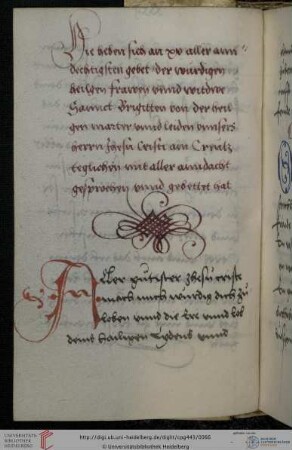 Hie heben sich an xv aller ann
dechtigsten gebet der wurdigen
heilgen frawen vnnd witwe
Sannct Brigitten von der heil
gen marter vnnd leiden vnnsers
herrn Jhesu Cristi am Creutz
teglichen mit aller anndacht
gesprochen vnnd gebettet hat
Aller gutister Jhesu criste
mach mich wurdig dich zu
loben vnnd die Ere vnnd lob
deins heiligen lydens vnnd
UNIVERSITÄTS-
BIBLIOTHEK
HEIDELBERG
http://digi.ub.uni-heidelberg.de/diglit/cpg443/0060
© Universitätsbibliothek Heidelberg